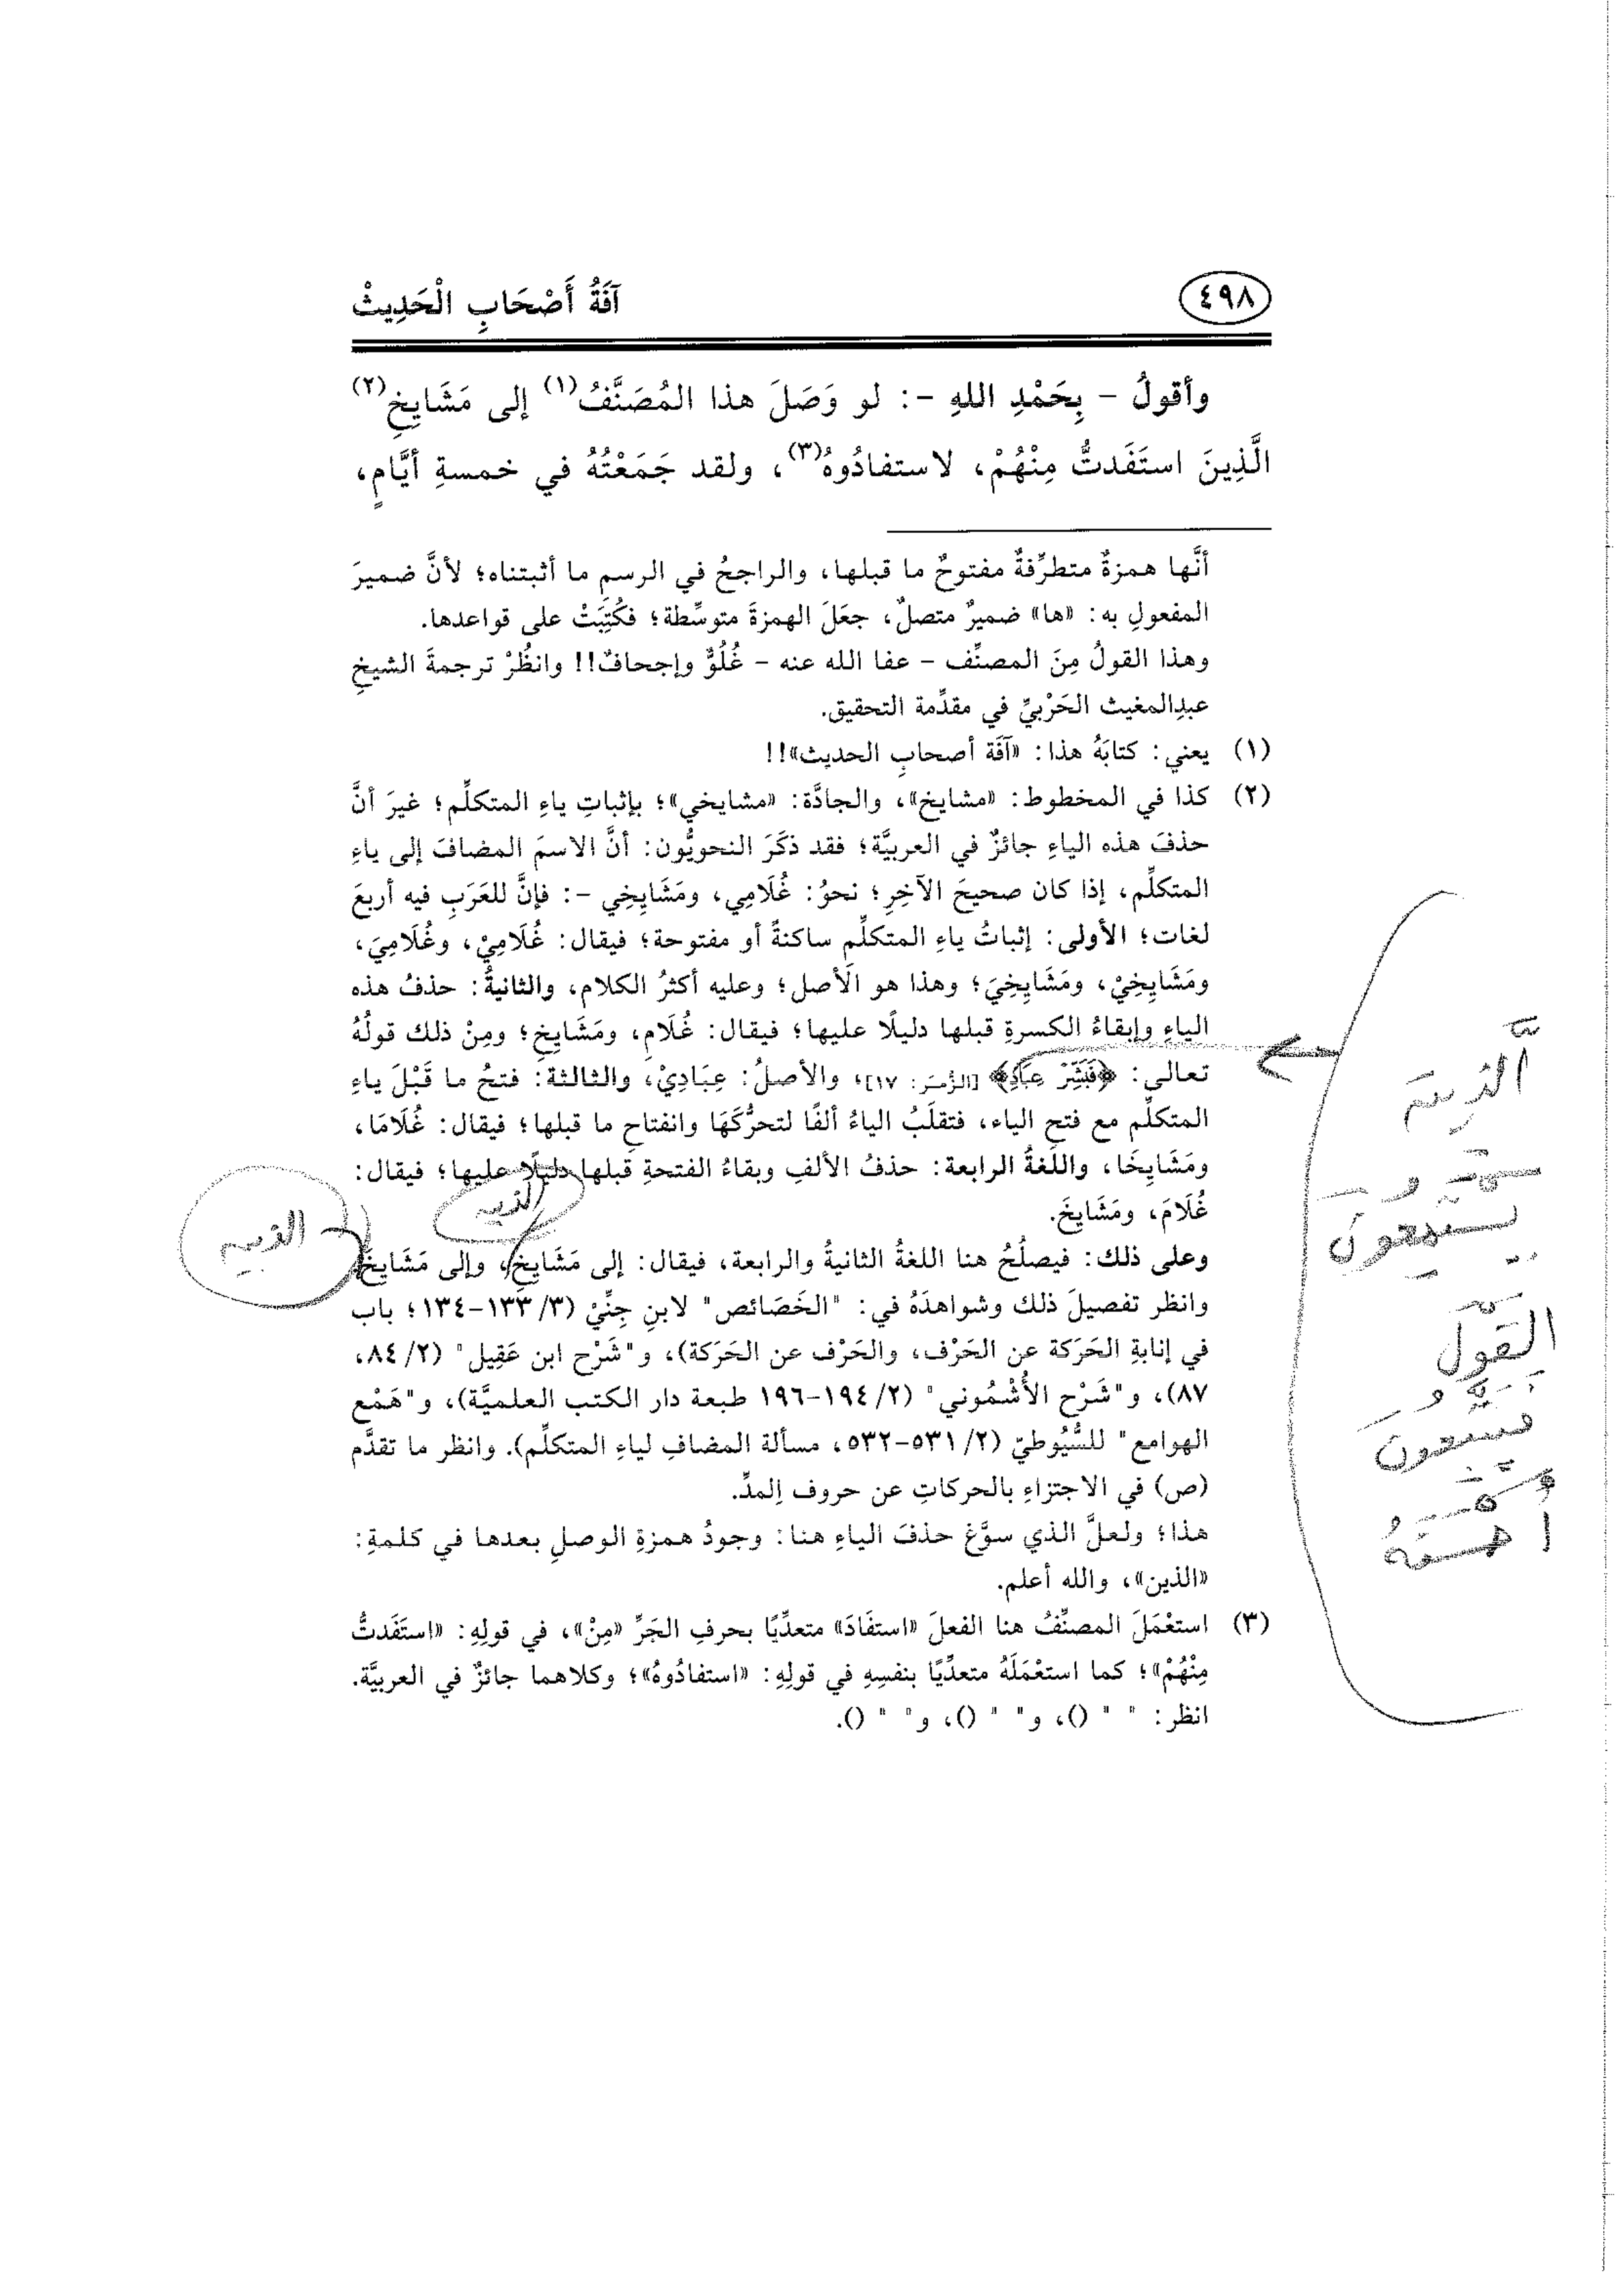 ٤٩٨
آفَةُ أَصْحَابِ الْحَدِيثْ
وأقولُ - بِحَمْدِ اللهِ -: لو وَصَلَ هذا المُصَنَّفُ(١) إلى مَشَايِخِ(٢)
الَّذِينَ استَفَدتُّ مِنْهُمْ، لاستفادُوهُ(٣)، ولقد جَمَعْتُهُ في خمسةِ أيَّامٍ،
أنَّها همزةٌ متطرِّفةٌ مفتوحٌ ما قبلها، والراجحُ في الرسمِ ما أثبتناه؛ لأنَّ ضميرَ
المفعولِ به: «ها» ضميرٌ متصلٌ، جعَلَ الهمزةَ متوسِّطة؛ فكُتِبَتْ على قواعدها.
وهذا القولُ مِنَ المصنِّف - عفا الله عنه - غُلُوٌّ وإجحافٌ!! وانظُرْ ترجمةَ الشيخِ
عبدِالمغيث الحَرْبيِّ في مقدِّمة التحقيق.
(١) يعني: كتابَهُ هذا: «آفَة أصحابِ الحديث»!!
(٢) كذا في المخطوط: «مشايخ»، والجادَّة: «مشايخي»؛ بإثباتِ ياءِ المتكلِّم؛ غيرَ أنَّ
حذفَ هذه الياءِ جائزٌ في العربيَّة؛ فقد ذكَرَ النحويُّون: أنَّ الاسمَ المضافَ إلى ياءِ
المتكلِّم، إذا كان صحيحَ الآخِرِ؛ نحوُ: غُلَامِي، ومَشَايِخِي -: فإنَّ للعَرَبِ فيه أربعَ
لغات؛ الأولى: إثباتُ ياءِ المتكلِّم ساكنةً أو مفتوحة؛ فيقال: غُلَامِيْ، وغُلَامِيَ،
ومَشَايِخِيْ، ومَشَايِخِيَ؛ وهذا هو الأصل؛ وعليه أكثرُ الكلام، والثانيةُ: حذفُ هذه
الياءِ وإبقاءُ الكسرةِ قبلها دليلًا عليها؛ فيقال: غُلَامِ، ومَشَايِخِ؛ ومِنْ ذلك قولُهُ
تعالى: ﴿فَبَشِّرْ عِبَادِ﴾ [الزُّمَر: ١٧]، والأصلُ: عِبَادِيْ، والثالثة: فتحُ ما قَبْلَ ياءِ
المتكلِّم مع فتحِ الياء، فتقلَبُ الياءُ ألفًا لتحرُّكَهَا وانفتاحِ ما قبلها؛ فيقال: غُلَامَا،
ومَشَايِخَا، واللغةُ الرابعة: حذفُ الألفِ وبقاءُ الفتحةِ قبلها دليلًا عليها؛ فيقال:
غُلَامَ، ومَشَايِخَ.
وعلى ذلك: فيصلُحُ هنا اللغةُ الثانيةُ والرابعة، فيقال: إلى مَشَايِخِ، وإلى مَشَايِخَ
الذين
الذين
وانظر تفصيلَ ذلك وشواهدَهُ في: "الخَصَائص" لابنِ جِنِّيْ (٣/ ١٣٣-١٣٤؛ باب
في إنابةِ الحَرَكة عن الحَرْف، والحَرْف عن الحَرَكة)، و"شَرْح ابن عَقِيل" (٢/ ٨٤،
٨٧)، و"شَرْح الأُشْمُوني" (٢/ ١٩٤-١٩٦ طبعة دار الكتب العلميَّة)، و"هَمْع
الهوامع" للسُّيُوطيّ (٢/ ٥٣١-٥٣٢، مسألة المضافِ لياءِ المتكلِّم). وانظر ما تقدَّم
(ص) في الاجتزاءِ بالحركاتِ عن حروف المدِّ.
هذا؛ ولعلَّ الذي سوَّغ حذفَ الياءِ هنا: وجودُ همزةِ الوصلِ بعدها في كلمةِ:
«الذين»، والله أعلم.
(٣) استعْمَلَ المصنِّفُ هنا الفعلَ «استفَادَ» متعدِّيًا بحرفِ الجَرِّ «مِنْ»، في قولِهِ: «استَفَدتُّ
مِنْهُمْ»؛ كما استعْمَلَهُ متعدِّيًا بنفسِهِ في قولِهِ: «استفادُوهُ»؛ وكلاهما جائزٌ في العربيَّة.
انظر: " " ()، و" " ()، و" " ().
الَّذِينَ
يَسْتَمِعُونَ
القَوْلَ
فَيَتَّبِعُونَ
أحْسَنَهُ